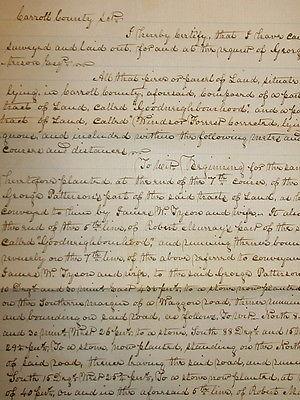 Carroll County Sct.
I hereby Certify, that I have
surveyed and laid out, for and at the request of George
All that piece or parcel of Land, situate
lying, in Carroll County, aforesaid, composed of a part
tract of Land, called "Goodneighbourhood," and a
tract of Land, called "Windsor Forrest connected,
and included within the following metes and
courses and distances.
To wit: Beginning for the
heretofore planted, at the end of the 7th course, of the
George Patterson's part of the said tracts of Land, as
conveyed to him by James W. Tyson and wife. It also
the end of the 6th line, of Robert Murray's part of the
called "Goodneighbourhood," and running thence
reversely on the 7th line, of the above referred to
James W. Tyson and wife, to the said George Patterson
10 Degs. and 30 mins. East 4 30 ps. to a stone, now planted
on the Southern margin of a Waggon road, thence
and bounding on said road, as follows, To wit. North 8
and 30 mins. West 26 ps. to a stone, South 88 Degs. and 15
29 ps. To a stone, now planted, standing on the North
of said road, thence leaving the said road, and
South 15 Degs. West 25 ps. To a stone now planted, at
of 40 ps. on and in the aforesaid 6th line, of Robert